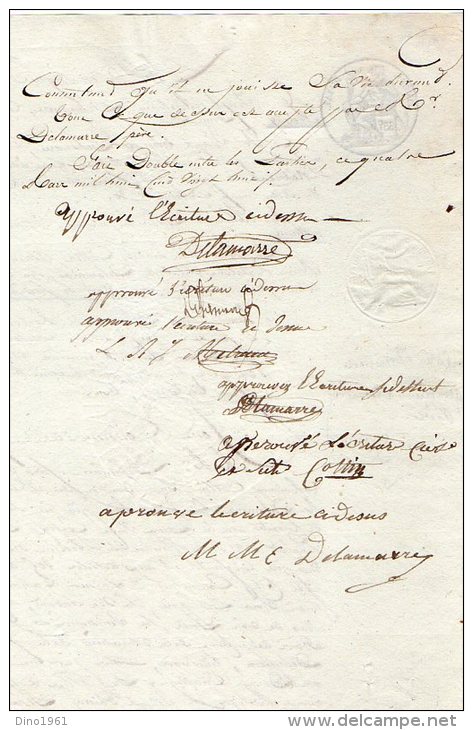 Consentant qu'il en jouisse Sa vie durant.
Tout Ce que dessus est accepté par Mr
Delamarre père.
Fait Double entre les Parties, ce quatre
mars mil huit Cent Vingt
Approuvé l'Ecriture cidessus
Delamarre
approuvé l'écriture cidessus
Delamarre
approuvé l'ecriture ci dessus
L A J
approuvez l'Ecriture sidessut
Delamarre
Aprouvé L'écriture
Collin
aprouve lecriture cidesus
M M E Delamarre
Dino1961
delcampe.net